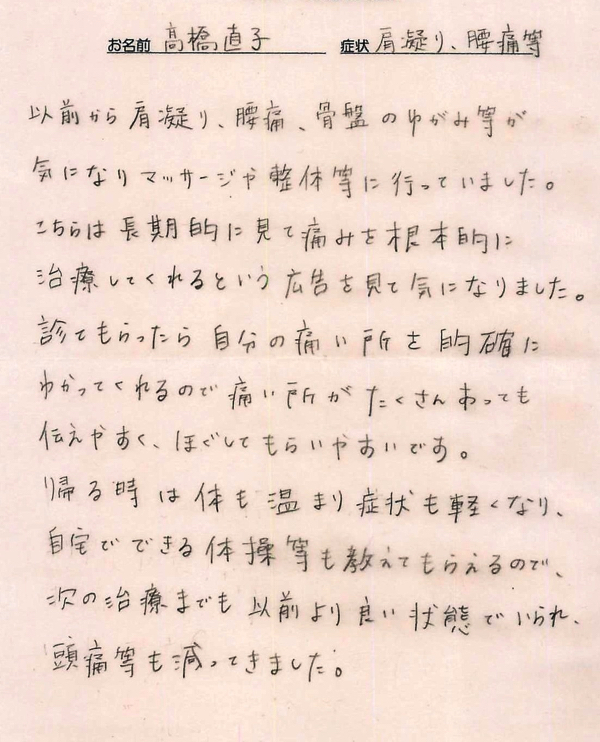 お名前 高橋直子 症状 肩凝り、腰痛等
以前から肩凝り、腰痛、骨盤のゆがみ等が
気になりマッサージや整体等に行っていました。
こちらは長期的に見て痛みを根本的に
治療してくれるという広告を見て気になりました。
診てもらったら自分の痛い所を的確に
わかってくれるので痛い所がたくさんあっても
伝えやすく、ほぐしてもらいやすいです。
帰る時は体も温まり症状も軽くなり、
自宅でできる体操等も教えてもらえるので、
次の治療までも以前より良い状態でいられ、
頭痛等も減ってきました。